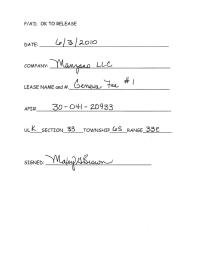 P/A'D. OK TO RELEASE
DATE: 6/3/2010
COMPANY: Manzano LLC
LEASE NAME and #. Geneva Fee #1
API# 30-041-20983
UL K SECTION 33 TOWNSHIP 6S RANGE 33E
SIGNED: